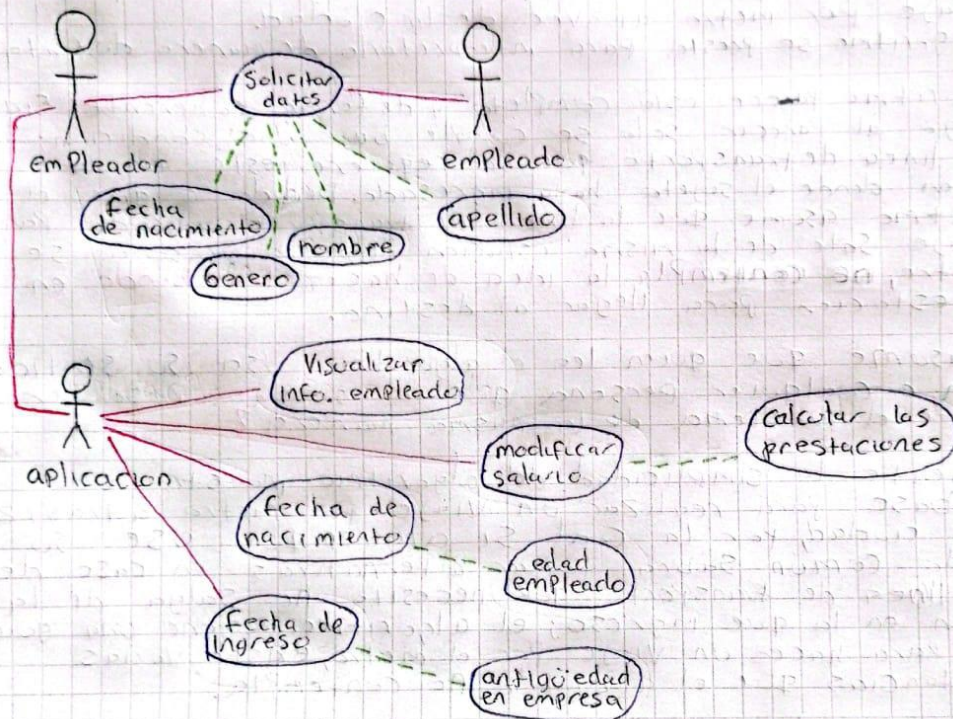 Solicitar
dates
empleador
empleado
fecha
de nacimiento
apellido
nombre
Genero
Visualizar
info. empleado
modificar
salario
calcular las
prestaciones
aplicacion
fecha de
nacimiento
edad
empleado
fecha de
ingreso
antigüedad
en empresa